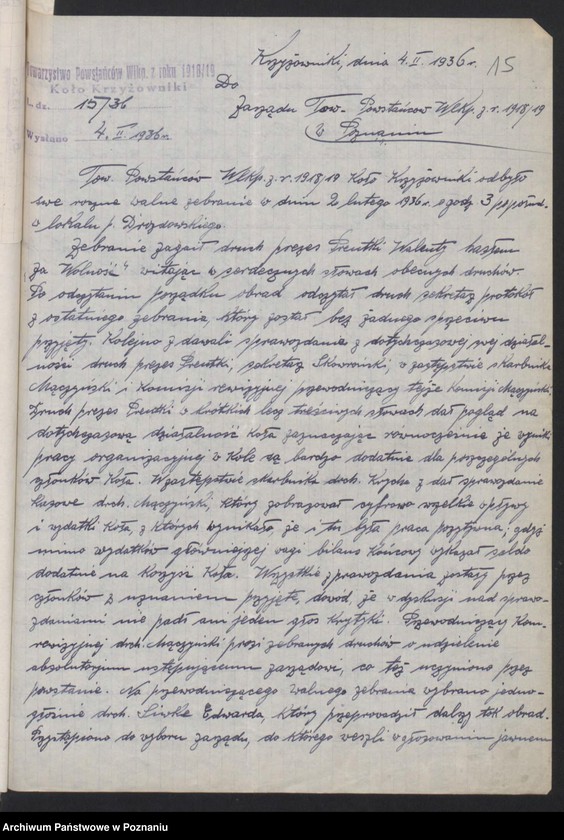 Krzyżowniki, dnia 4. II. 1936 r.
15
Towarzystwo Powstańców Wlkp. z roku 1918/19
Koło Krzyżowniki
L. dz. 15/36
Wysłano 4. II 1936 r.
Do
Zarządu Tow. Powstańców Wlkp. z r. 1918/19
w Poznaniu
Tow. Powstańców Wlkp. z r. 1918/19 Koło Krzyżowniki odbyło
swe roczne walne zebranie w dniu 2 lutego 1936 r. o godz. 3 popołud.
w lokalu p. Drozdowskiego.
Zebranie zagaił druch prezes Prentki Walenty hasłem
"Za Wolność" witając w serdecznych słowach obecnych druchów.
Po odczytaniu porządku obrad odczytał druch sekretaz protokół
z ostatniego zebrania, który został bez żadnego sprzeciwu
przyjęty. Kolejno zdawali sprawozdania z dotychczasowej swej działal-
ności druch prezes Prentki, sekretaz Skowroński, w zastępstwie skarbnika
Mączyński i Komisji rewizyjnej przewodniczący tejże Komisji Mączyński.
Druch prezes Prentki w krótkich lecz treściwych słowach dał pogląd na
dotychczasową działalność Koła zaznaczając równocześnie że wyniki
pracy organizacyjnej w Kole są bardzo dodatnie dla poszczególnych
członków Koła. W zastępstwie skarbnika drch. zdał sprawozdanie
kasowe drch. Mączyński, który zobrazował cyfrowo wszelkie wpływy
i wydatki Koła, z których wynikało, że i tu była praca pozytywna, gdyż
mimo wydatków główniejszej wagi bilans końcowy wykazał saldo
dodatnie na korzyść Koła. Wszystkie sprawozdania zostały przez
członków z uznaniem przyjęte, dowód, że w dyskusji nad sprawo-
zdaniami nie padł ani jeden głos krytyki. Przewodniczący Kom.
rewizyjnej drch. Mączyński prosi zebranych druchów o udzielenie
absolutorium ustępującemu zarządowi, co też uczyniono przez
powstanie. Na przewodniczącego walnego zebrania wybrano jedno-
głośnie drch. Siwke Edwarda, który przeprowadził dalszy tok obrad.
Przystąpiono do wyboru zarządu, do którego weszli w głosowaniu jawnem
Archiwum Państwowe w Poznaniu